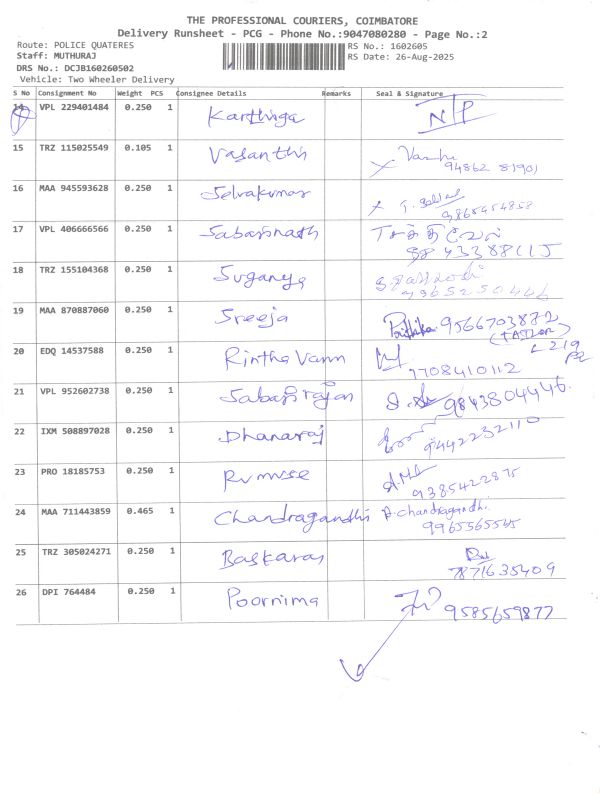 THE PROFESSIONAL COURIERS, COIMBATORE
Delivery Runsheet - PCG - Phone No.:9047080280 - Page No.:2
Route: POLICE QUATERES
RS No.: 1602605
Staff: MUTHURAJ
RS Date: 26-Aug-2025
DRS No.: DCJB160260502
Vehicle: Two Wheeler Delivery
S No Consignment No Weight PCS Consignee Details Remarks Seal & Signature
14 VPL 229401484 0.250 1 Karthiga NTP
15 TRZ 115025549 0.105 1 Vasanthi
94862 81901
16 MAA 945593628 0.250 1 Selvakumar
9865454858
17 VPL 406666566 0.250 1 Sabarinath
18 TRZ 155104368 0.250 1 Suganya
9965250446
19 MAA 870887060 0.250 1 Sreeja Prithika 9566703872
(TAILOR)
L 219
20 EDQ 14537588 0.250 1 Rintha Vann
7708410112
21 VPL 952602738 0.250 1 Sabarirajan 9843804446.
22 IXM 508897028 0.250 1 Dhanaraj 9442232110
23 PRO 18185753 0.250 1
9385422875
24 MAA 711443859 0.465 1 Chandragandhi A.chandragandhi.
9965565545
25 TRZ 305024271 0.250 1 Baskaran
7871635409
26 DPI 764484 0.250 1 Poornima 9585659877